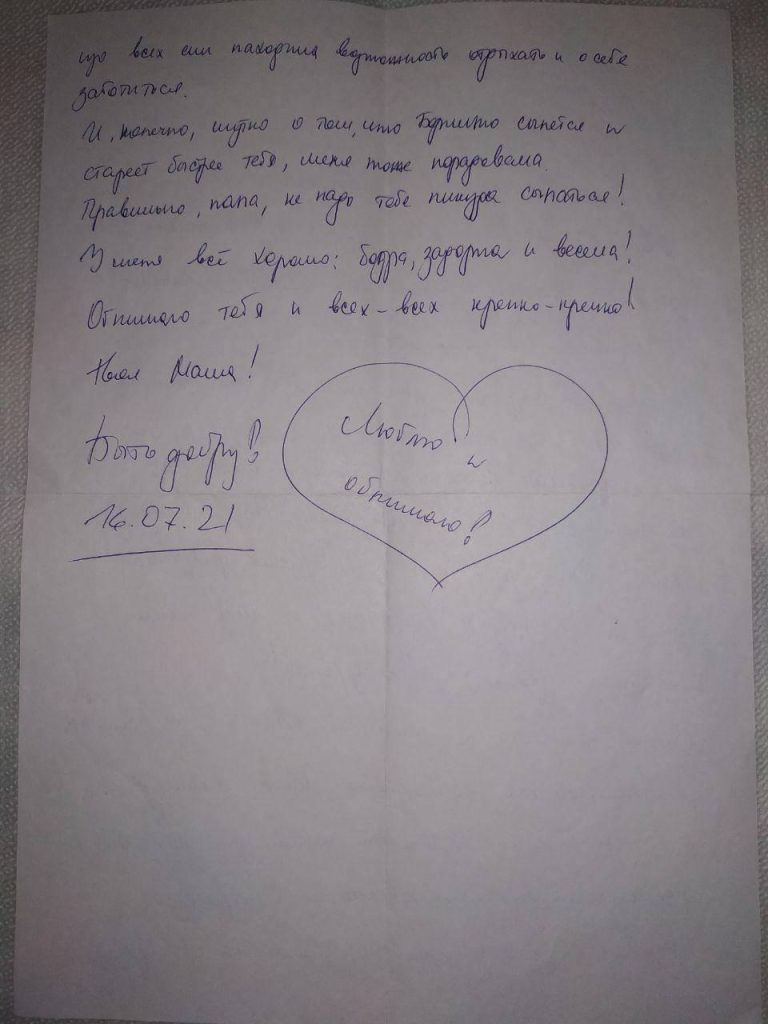 изо всех сил находила возможность отдыхать и о себе
заботиться.
И, конечно, шутка о том, что сыпется и
стареет быстрее тебя, меня тоже порадовала.
Правильно, папа, не надо тебе никуда сыпаться!
У меня всё хорошо: бодра, здорова и весела!
Обнимаю тебя и всех-всех крепко-крепко!
Маша!
Быть добру!
16.07.21
Люблю и
обнимаю!